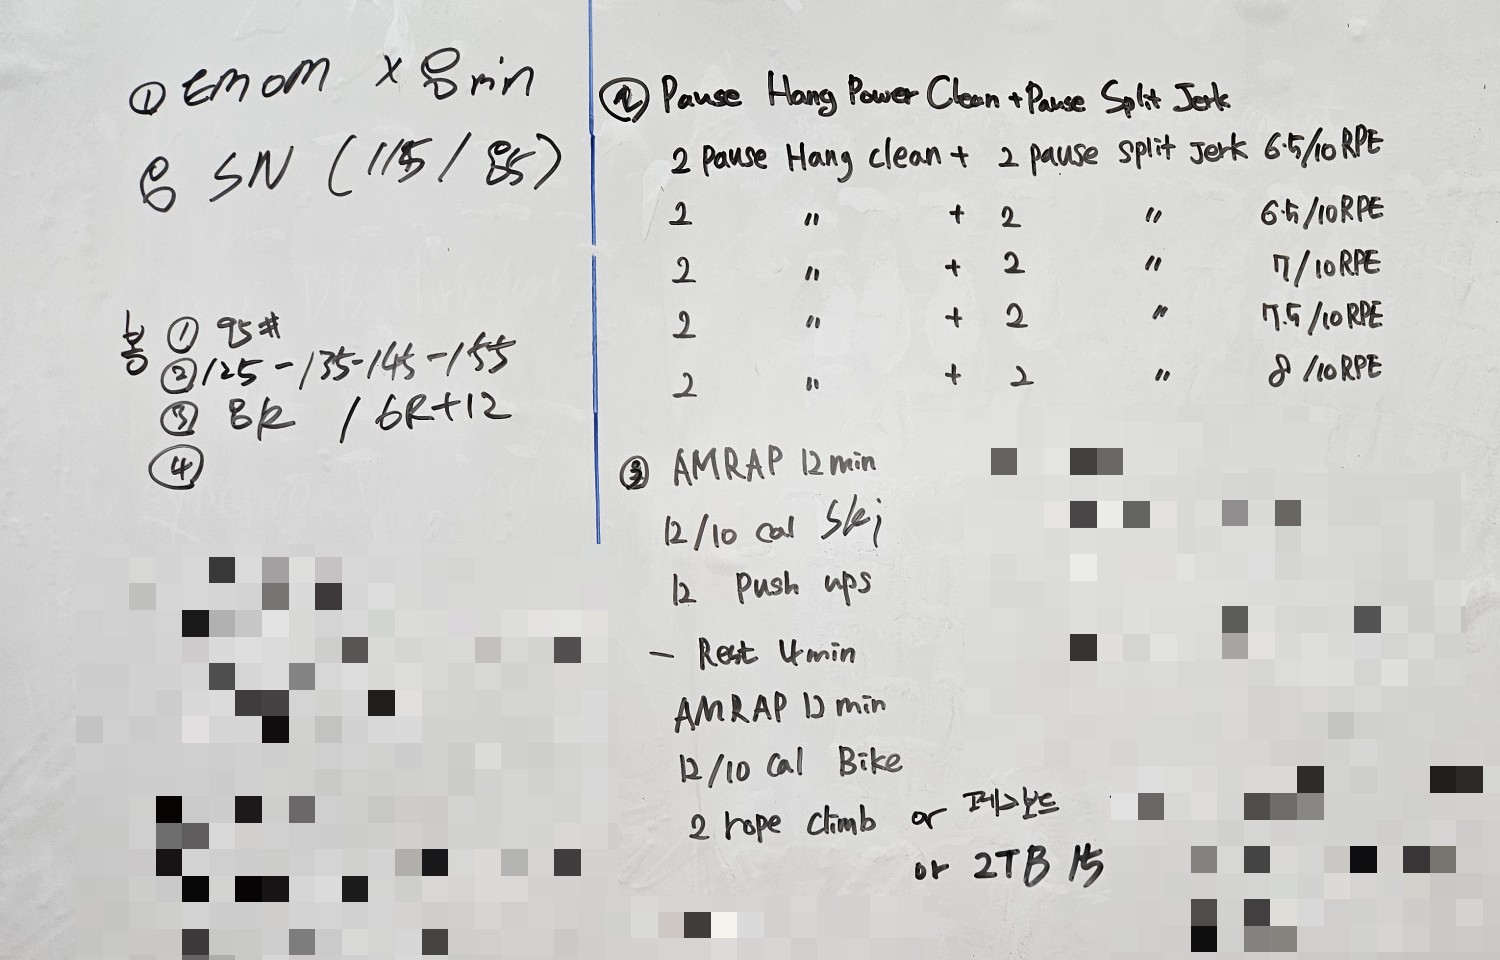 ① EMOM x 8min
8 SN (115/85)
봉 ① 95#
② 125-135-145-155
③ 8R / 6R+12
④
② Pause Hang Power Clean + Pause Split Jerk
2 Pause Hang clean + 2 pause split Jerk 6.5/10 RPE
2 〃 + 2 〃 6.5/10RPE
2 〃 + 2 〃 7/10RPE
2 〃 + 2 〃 7.5/10RPE
2 〃 + 2 〃 8/10RPE
③ AMRAP 12min
12/10 cal Ski
12 Push ups
- Rest 4min
AMRAP 12min
12/10 Cal Bike
2 rope climb or 페그보드
or 2TB 15